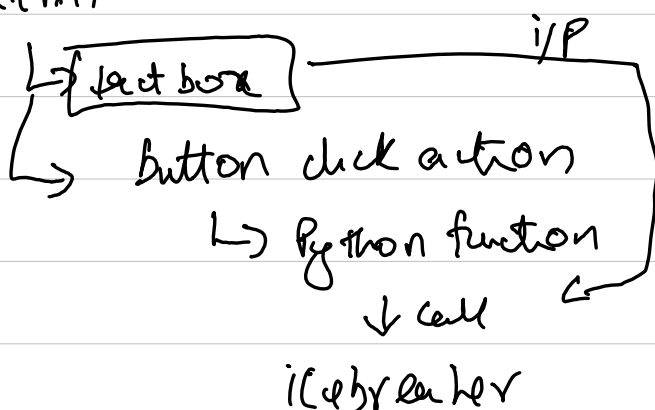 i/P
↳ text box
↳ Button click action
↳ Python function
↓ call
icebreaker